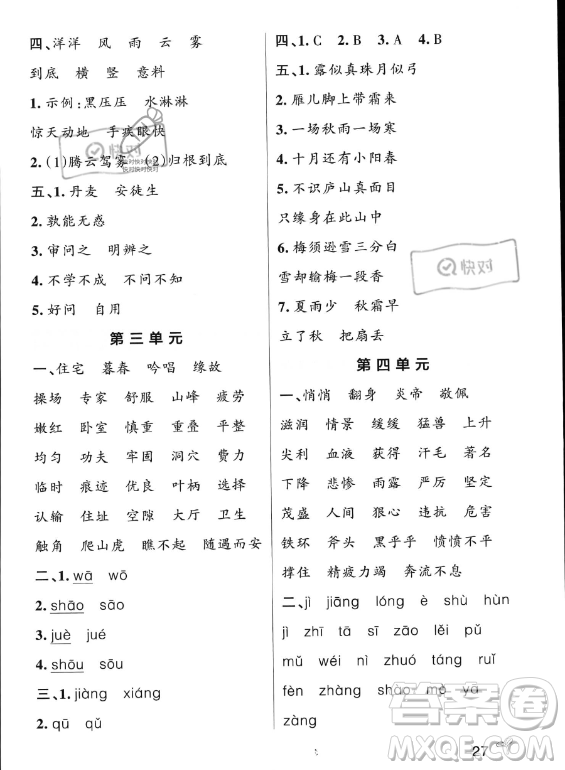 四、洋洋 风 雨 云 雾
到底 横 竖 意料
1. 示例:黑压压 水淋淋
惊天动地 手疾眼快
2. (1)腾云驾雾 (2)归根到底
五、1. 丹麦 安徒生
2. 孰能无惑
3. 审问之 明辨之
4. 不学不成 不问不知
5. 好问 自用
第三单元
一、住宅 暮春 吟唱 缘故
操场 专家 舒服 山峰 疲劳
嫩红 卧室 慎重 重叠 平整
均匀 功夫 牢固 洞穴 费力
临时 痕迹 优良 叶柄 选择
认输 住址 空隙 大厅 卫生
触角 爬山虎 瞧不起 随遇而安
二、1. wā wō
2. shāo sāo
3. juè jué
4. shōu sōu
三、1. jiàng xiáng
2. qū qǔ
四、1. C 2. B 3. A 4. B
五、1. 露似真珠月似弓
2. 雁儿脚上带霜来
3. 一场秋雨一场寒
4. 十月还有小阳春
5. 不识庐山真面目
只缘身在此山中
6. 梅须逊雪三分白
雪却输梅一段香
7. 夏雨少 秋霜早
立了秋 把扇丢
第四单元
一、悄悄 翻身 炎帝 敬佩
滋润 情景 缓缓 猛兽 上升
尖利 血液 获得 汗毛 著名
下降 悲惨 雨露 严厉 坚定
茂盛 人间 狠心 违抗 危害
铁环 斧头 亮晶晶 愤愤不平
撑住 精疲力竭 奔流不息
二、jì jiāng lóng è shù hùn
jì zhī tā sī zāo lěi pǔ
mǔ wéi nì zhuó táng ruǐ
fèn zhàng shào mó yá
zàng
快对
快对
27
答案圈
MXQE.COM